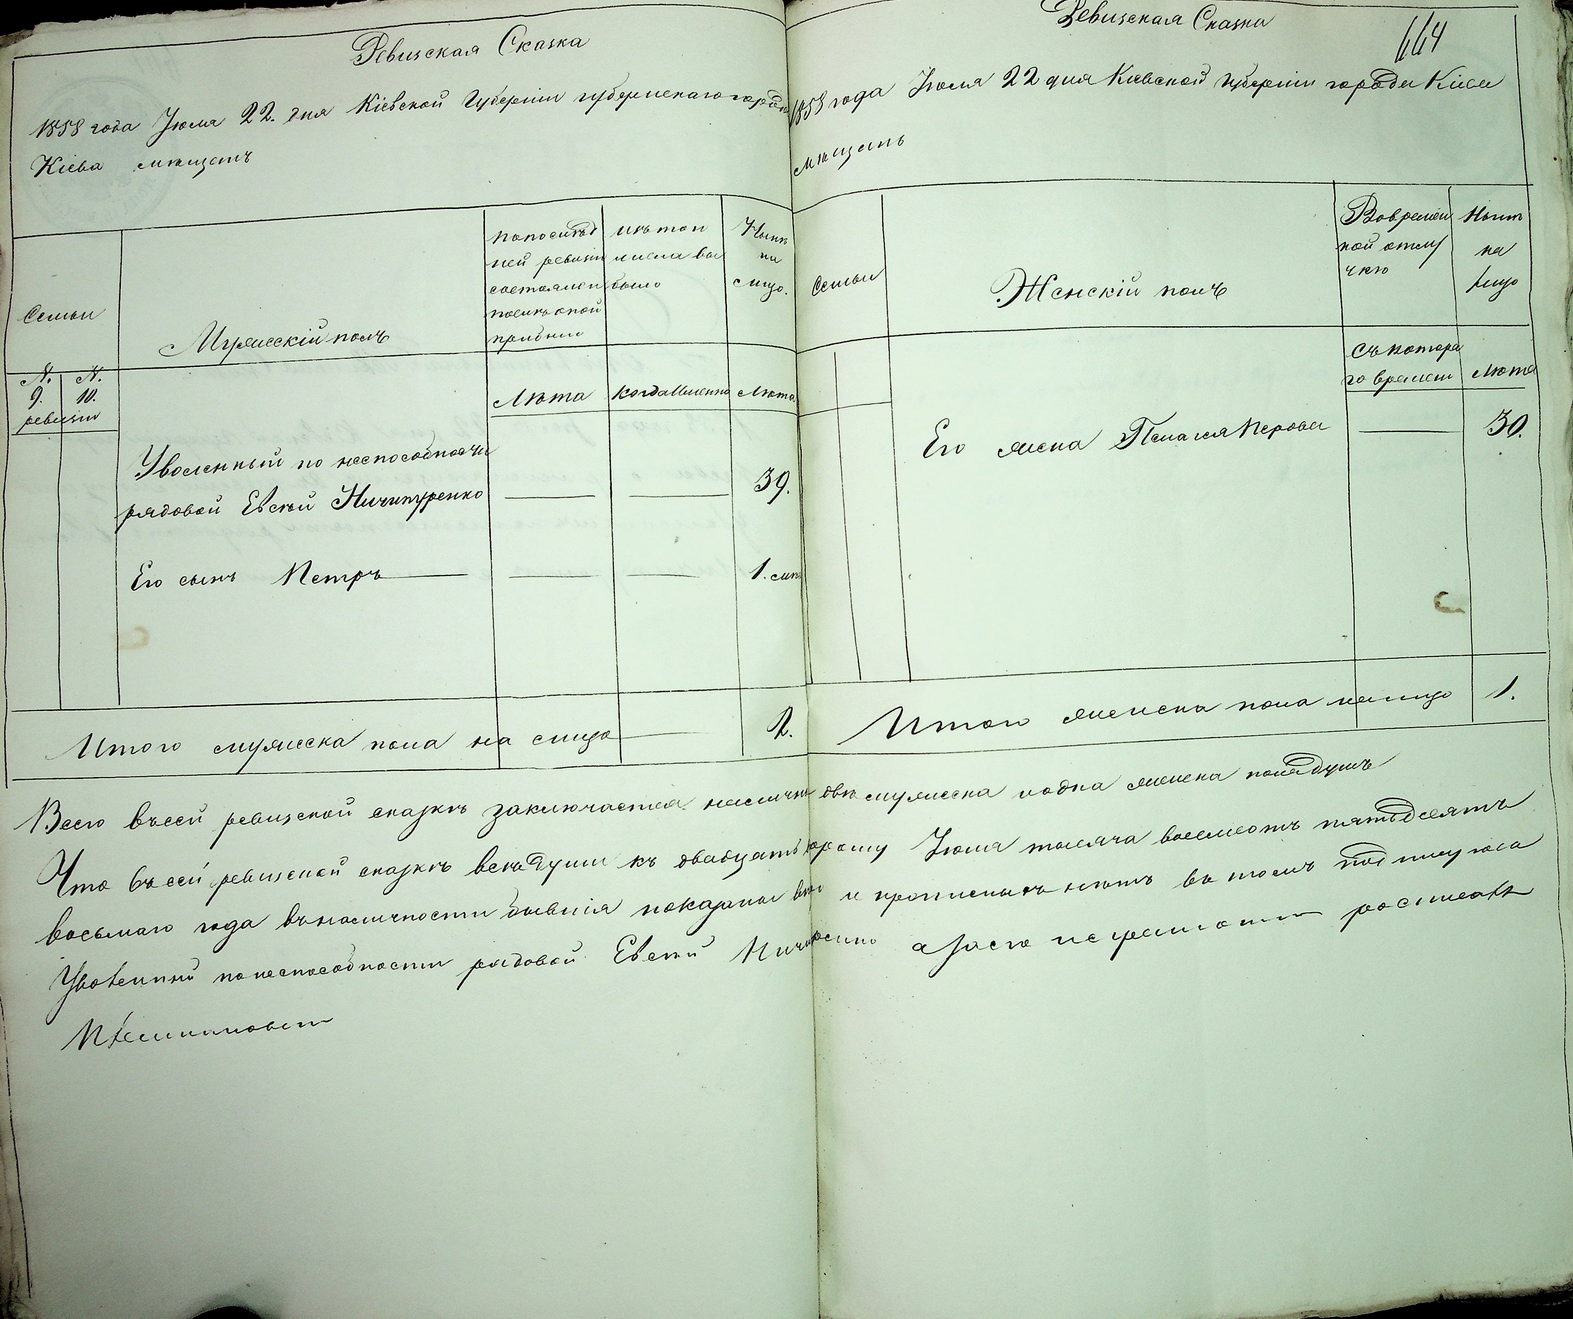 Ревизская Сказка
1858 года Июля 22. дня Кіевской Губерніи губернскаго города
Кіева мѣщанъ
Семьи
Мужескій полъ
по послѣд
ней ревизіи
состояло и
послѣ оной
прибыло
изъ того
числа вы
было
Нынѣ
на
лицо.
N. N.
9. 10.
ревизіи
Лѣта
когда именно
Лѣта
Уволенный по неспособности
рядовой Евсѣй Ничипуренко
39.
Его сынъ Петръ
1.
Итого мужеска пола на лицо
2.
664
Ревизская Сказка
1858 года Июля 22 дня Кіевской губерніи города Кіева
мѣщанъ
Семьи
Женскій полъ
Во времен
ной отлу
чкѣ
Нынѣ
на
лицо
Съ котора
го времени
Лѣта
Его жена Пелагея Петрова
30.
Итого женска пола на лицо
1.
Всего въ сей ревизской сказкѣ заключается на лицо двѣ мужеска и одна женска пола душъ
Что въ сей ревизской сказкѣ всѣ души къ двадцать второму Июля тысяча восемсотъ пятьдесятъ
восьмаго года въ наличности бывшія показаны всѣ и прописныхъ нѣтъ въ томъ подписуюсь
Уволенный по неспособности рядовой Евсѣй а за его неграмотн росписався